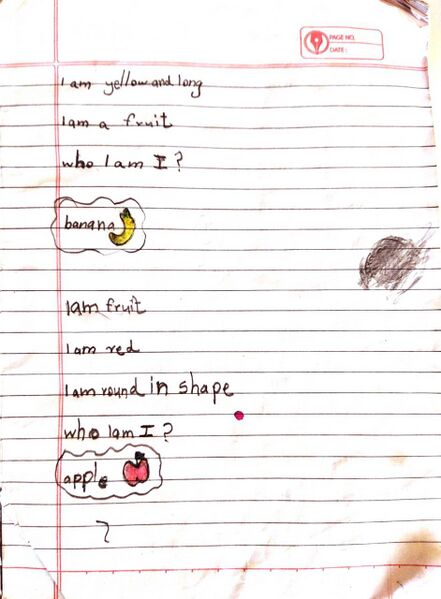 PAGE NO.
DATE:
I am yellow and long
I am a fruit
who I am I ?
banana
I am fruit
I am red
I am round in shape
who I am I ?
apple